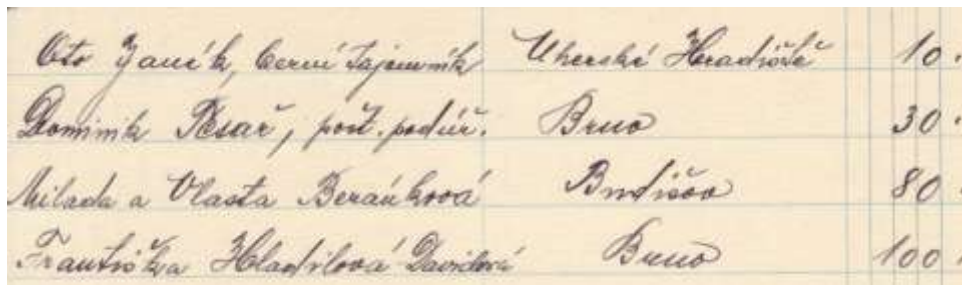 Oto Jančík, berní tajemník Uherské Hradiště 10.
Dominik Pěsař, pošt. podúř. Brno 30.
Milada a Vlasta Beránková Budišov 80.
Františka Hladilová Davidová Brno 100.